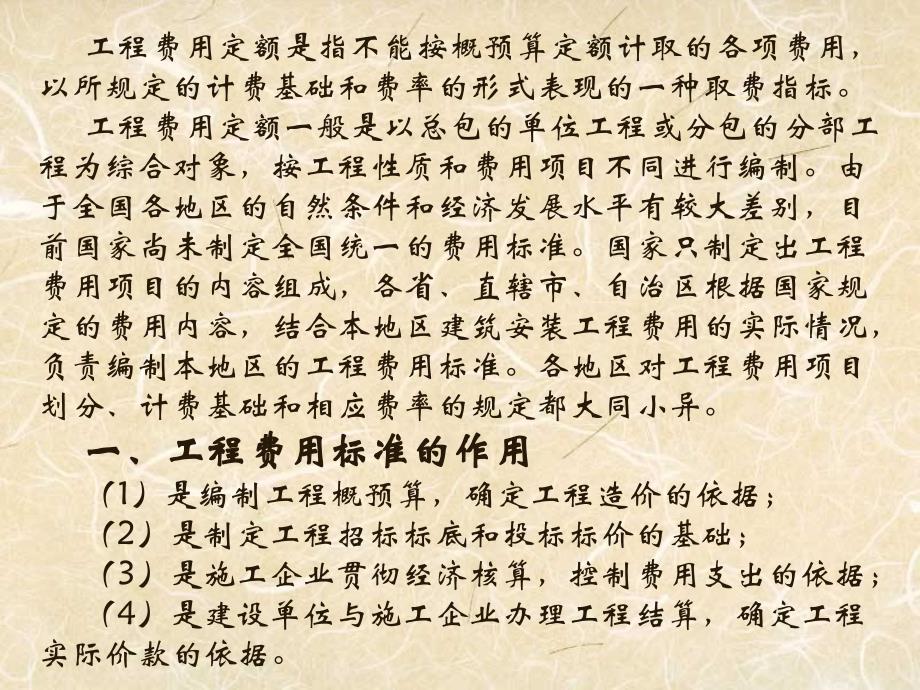 工程费用定额是指不能按概预算定额计取的各项费用，
以所规定的计费基础和费率的形式表现的一种取费指标。
工程费用定额一般是以总包的单位工程或分包的分部工
程为综合对象，按工程性质和费用项目不同进行编制。由
于全国各地区的自然条件和经济发展水平有较大差别，目
前国家尚未制定全国统一的费用标准。国家只制定出工程
费用项目的内容组成，各省、直辖市、自治区根据国家规
定的费用内容，结合本地区建筑安装工程费用的实际情况，
负责编制本地区的工程费用标准。各地区对工程费用项目
划分、计费基础和相应费率的规定都大同小异。
一、工程费用标准的作用
（1）是编制工程概预算，确定工程造价的依据；
（2）是制定工程招标标底和投标标价的基础；
（3）是施工企业贯彻经济核算，控制费用支出的依据；
（4）是建设单位与施工企业办理工程结算，确定工程
实际价款的依据。